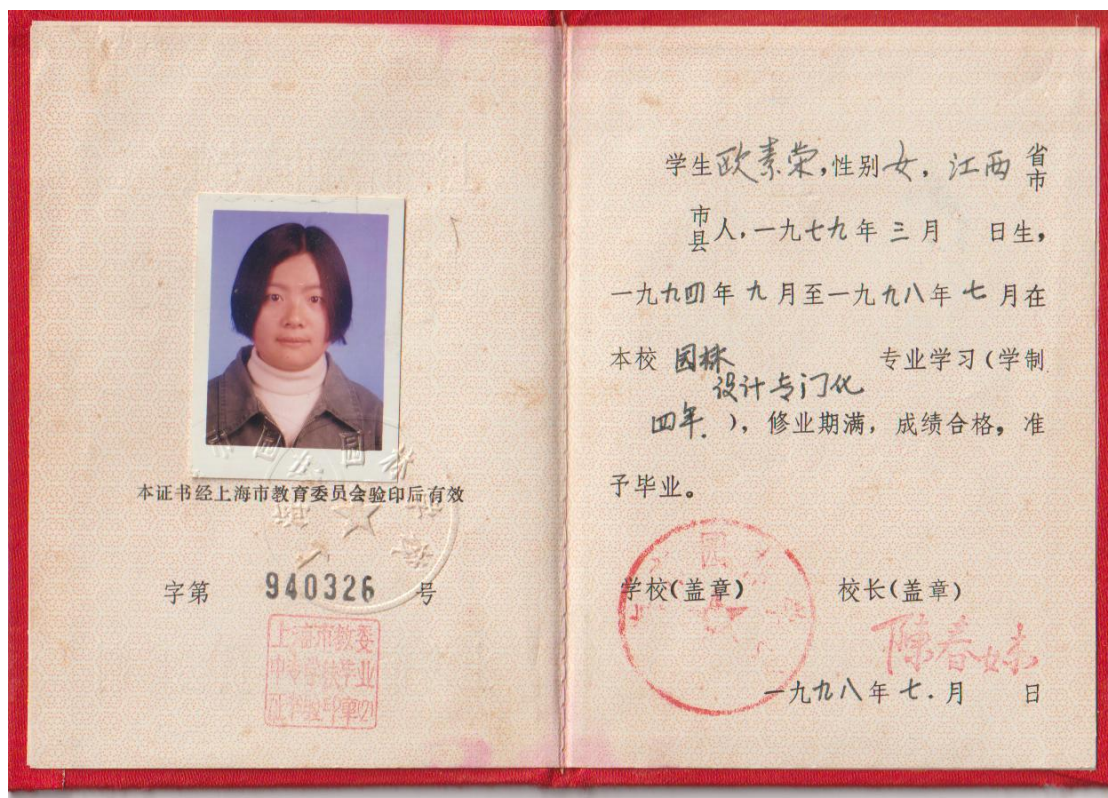 本证书经上海市教育委员会验印后有效
字第 940326 号
上海市教委
中专学校毕业
证书验印章(2)
学生欧素荣，性别女，江西省市
市县人，一九七九年三月 日生，
一九九四年九月至一九九八年七月在
本校园林 专业学习(学制
设计专门化
四年.)，修业期满，成绩合格，准
予毕业。
学校(盖章) 校长(盖章)
陈春妹
一九九八年七.月 日